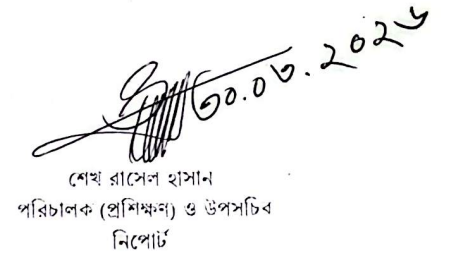 ৩০.০৩.২০২৬
শেখ রাসেল হাসান
পরিচালক (প্রশিক্ষণ) ও উপসচিব
নিপোর্ট